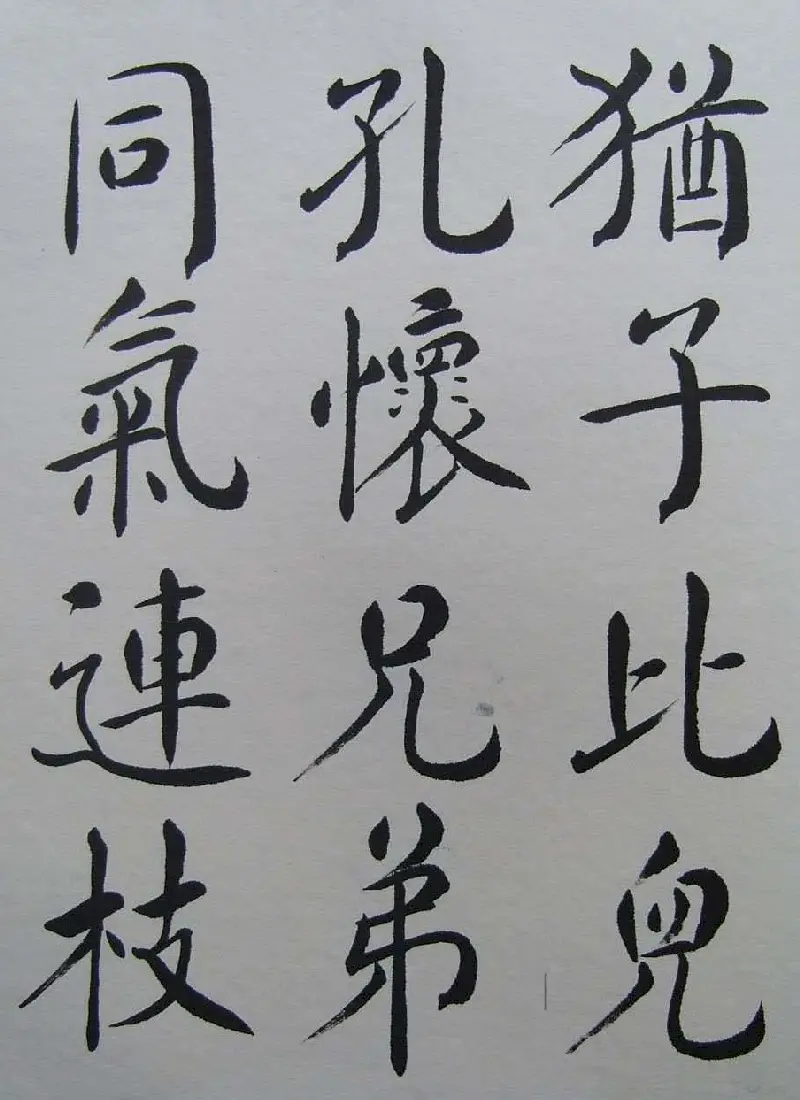 猶子比兒
孔懷兄弟
同氣連枝